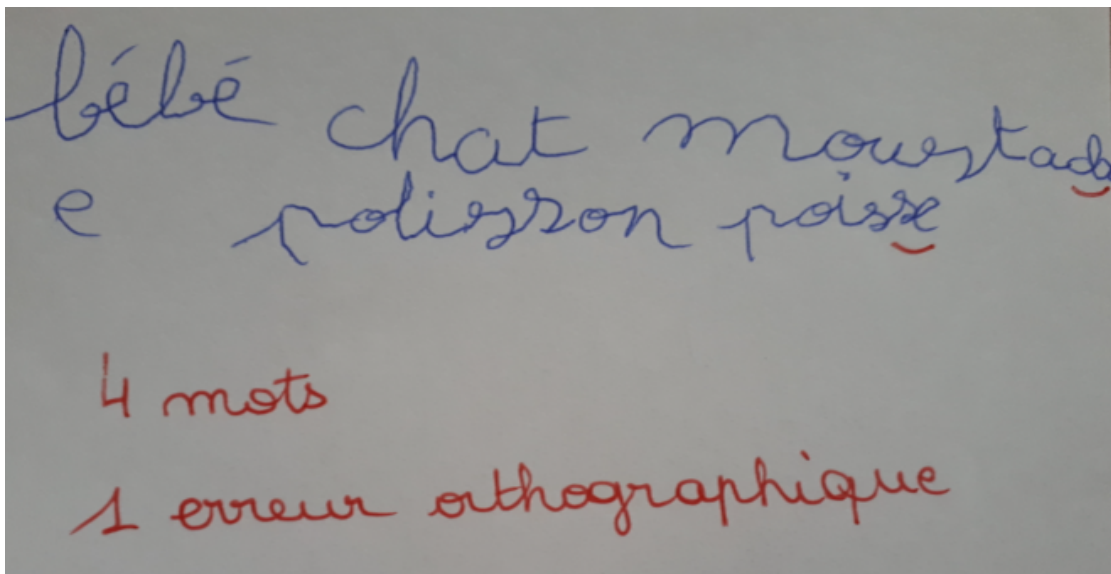 bébé chat moustach
e polisson poisse
4 mots
1 erreur orthographique